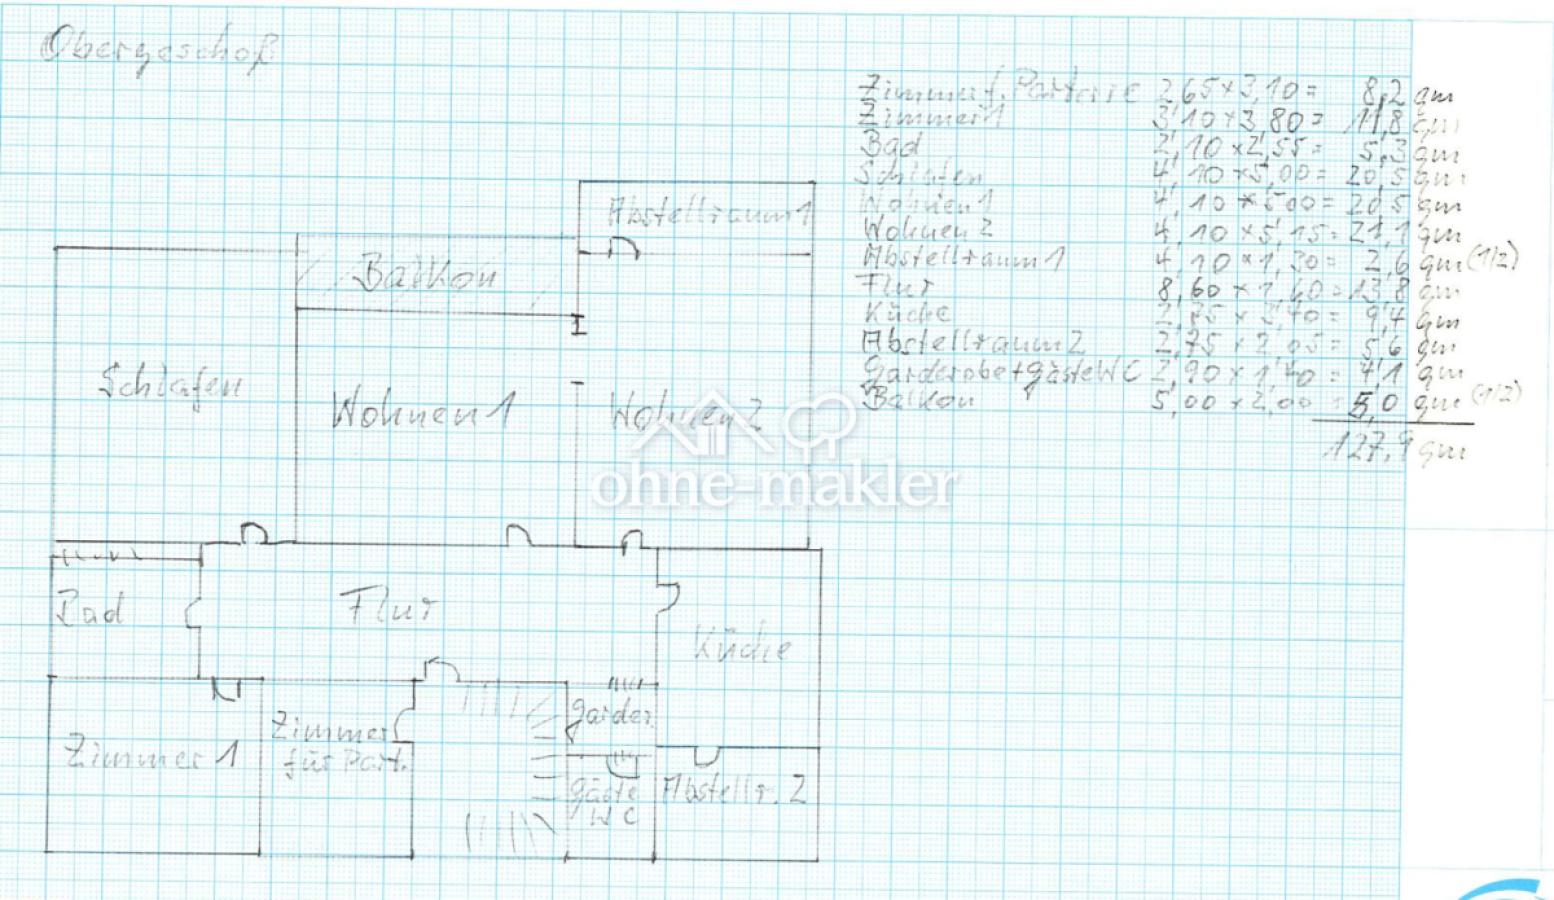 Obergeschoß
Zimmer f. Parterre 2,65 x 3,10 = 8,2 qm
Zimmer 1 3,10 x 3,80 = 11,8 qm
Bad 2,10 x 2,55 = 5,3 qm
Schlafen 4,10 x 5,00 = 20,5 qm
Wohnen 1 4,10 x 5,00 = 20,5 qm
Wohnen 2 4,10 x 5,15 = 21,1 qm
Abstellraum 1 4,10 x 1,30 = 2,6 qm (1/2)
Flur 8,60 x 1,60 = 13,8 qm
Küche 2,75 x 3,40 = 9,4 qm
Abstellraum 2 2,75 x 2,05 = 5,6 qm
Garderobe + Gäste WC 2,90 x 1,40 = 4,1 qm
Balkon 5,00 x 2,00 = 5,0 qm (1/2)
127,9 qm
Abstellraum 1
Balkon
Schlafen
Wohnen 1
Wohnen 2
ohne-makler
Bad
Flur
Küche
Garder.
Zimmer 1
Zimmer
für Part.
Gäste
WC
Abstellr. 2